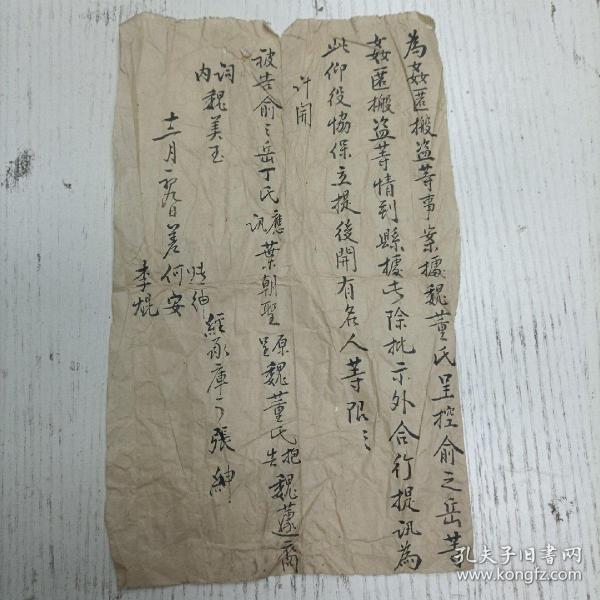 為姦匿搬盜等事案據魏董氏呈控俞之岳等
姦匿搬盜等情到縣據此除批示外合行提訊為
此仰役協保立提後開有名人等限々
計開
被告俞之岳 丁氏 應訊 葉朝聖 原呈 魏董氏 抱告 魏蘧裔
詞內 魏美玉
十二月 日差 何安 季焜
經承庫丁張紳
孔夫子旧书网
www.kongfz.com